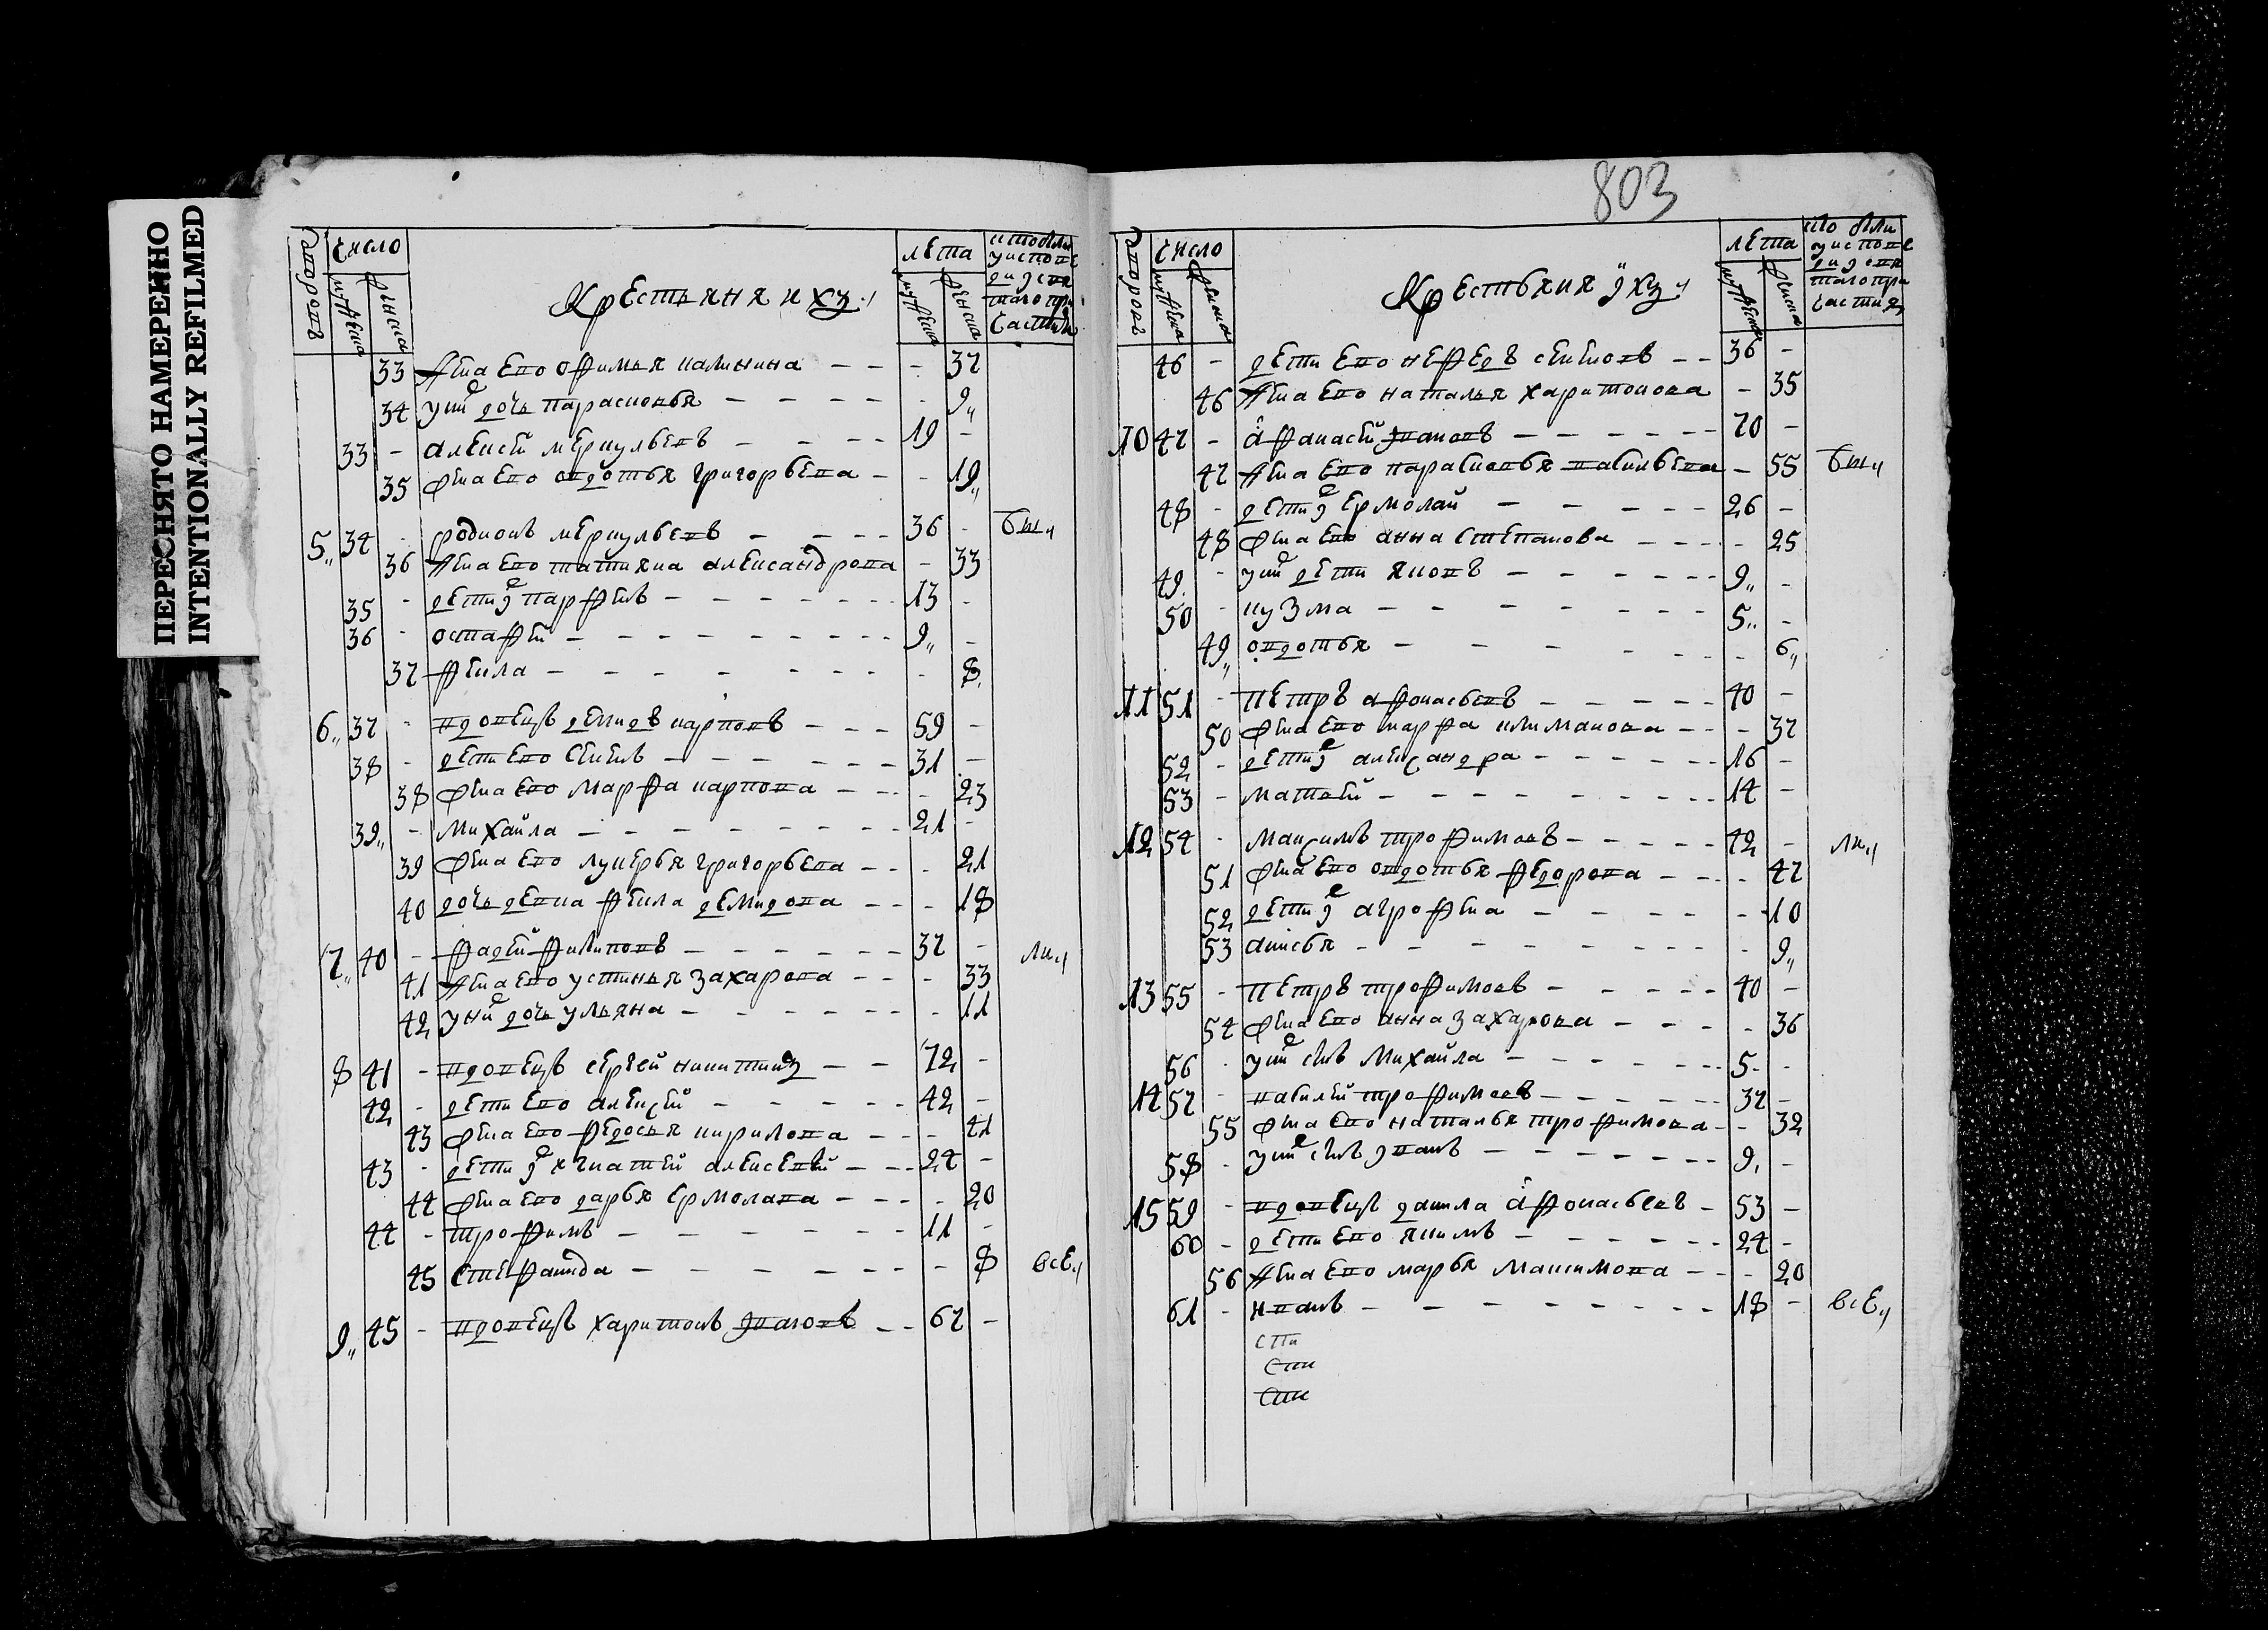 ПЕРЕСНЯТО НАМЕРЕННО
INTENTIONALLY REFILMED
803
число
лета
дворовъ
мужеска
женска
крестьяня ихъ
мужеска
женска
33 жена ево офимья калинина - - - 37
34 у них дочь парасковья - - - - - 9
33 - алексей меркульевъ - - - - 19 -
35 жена ево овдотья григорьева - - 19
5 34 - родионъ меркульевъ - - - - 36 - были
36 жена ево татияна александрова - 33
35 - дети их парфенъ - - - - - - - 13 -
36 - остафей - - - - - - - - - 9 -
37 фекла - - - - - - - - 8
6 37 - вдовецъ демидъ карповъ - - - 59 -
38 - дети ево сековъ - - - - - - 31 -
38 жена ево марфа карпова - - - - 23
39 - михайла - - - - - - - - 21 -
39 жена ево лукерья григорьева - - - 21
40 дочь девка фекла демидова - - - 18
7 40 - фадей филиповъ - - - - - - 37 -
41 жена ево устинья захарова - - - - 33
42 у них дочь ульяна - - - - - - - 11
8 41 - вдовецъ сергей никитинъ - - 72 -
42 - дети ево алексей - - - - - 42 -
43 жена ево федосья кирилова - - - 41
43 - дети их игнатей алексеевъ - - - 24 -
44 жена ево дарья ермолаева - - - - 20
44 - трофимъ - - - - - - - 11 -
45 степанида - - - - - - - - 8 все
9 45 - вдовецъ харитонъ ивановъ - - 67 -
число
лета
дворовъ
мужеска
женска
крестьяня ихъ
мужеска
женска
46 - дети ево нефедъ - - 36 -
46 жена ево наталья харитонова - 35
10 47 - афанасей ивановъ - - - - - - 70 -
47 жена ево парасковья васильева - 55 были
48 - дети их ермолай - - - - - 26 -
48 жена ево анна степанова - - - - - 25
49 - у них дети яковъ - - - - - - 9 -
50 - кузма - - - - - - - - 5 -
49 овдотья - - - - - - - 6
11 51 - петръ афонасьевъ - - - - - 40 -
50 жена ево марфа климанова - - - 37
52 - дети их александра - - - - - - 16 -
53 - матвей - - - - - - - - 14 -
12 54 - максимъ трофимовъ - - - - - 42 -
51 жена ево овдотья федорова - - - - 47
52 дети их агрофена - - - - - - 10
53 анисья - - - - - - - - - 9
13 55 - петръ трофимовъ - - - - - 40 -
54 жена ево анна захарова - - - - 36
56 - у них сынъ михайла - - - - - - - 5 -
14 57 - василей трофимовъ - - - - - - 37 -
55 жена ево наталья трофимова - - 32
58 - у них сынъ иванъ - - - - - - - 9 -
15 59 - вдовецъ данила афонасьевъ - 53 -
60 - дети ево якимъ - - - - - - 24 -
56 жена ево марья максимова - - - 20
61 - иванъ - - - - - - - - 18 - все